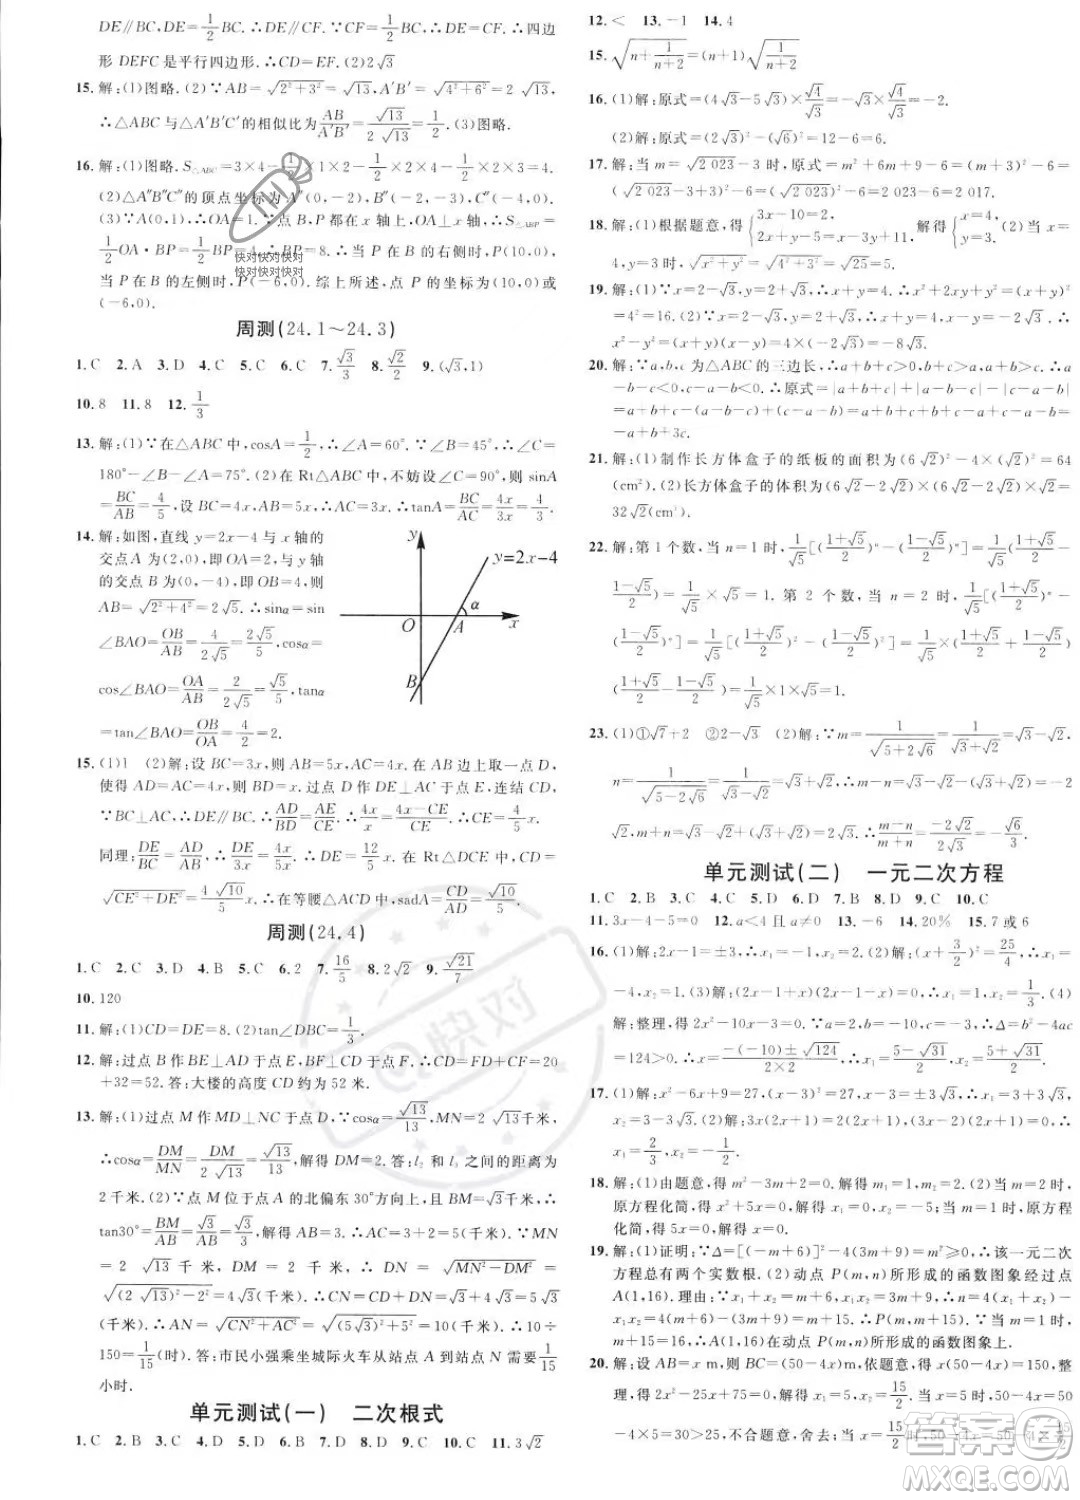 DE∥BC,DE=1/2BC.∴DE∥CF.∵CF=1/2BC,∴DE=CF.∴四边
形 DEFC 是平行四边形.∴CD=EF.(2)2√3
15.解:(1)图略.(2)∵AB=√(2²+3²)=√13,A′B′=√(4²+6²)=2√13,
∴△ABC与△A′B′C′的相似比为AB/A′B′=√13/(2√13)=1/2.(3)图略.
16.解:(1)图略.S△ABC=3×4-1/2×1×2-1/2×2×4-1/2×2×3=4.
(2)△A″B″C″的顶点坐标为A″(0,-2),B″(-4,0),C″(-6,-4).
(3)∵A(0,1),∴OA=1.∵点B,P都在x轴上,OA⊥x轴,∴S△ABP=
1/2OA·BP=1/2BP=4.∴BP=8.当 P 在 B 的右侧时,P(10,0);
当 P 在 B 的左侧时,P(-6,0).综上所述,点 P 的坐标为(10,0)或
(-6,0).
周测(24.1～24.3)
1.C 2.A 3.D 4.C 5.C 6.C 7.√3/3 8.√2/2 9.(√3,1)
10.8 11.8 12.1/3
13.解:(1)∵在△ABC中,cosA=1/2,∴∠A=60°.∵∠B=45°,∴∠C=
180°-∠B-∠A=75°.(2)在Rt△ABC中,不妨设∠C=90°,则sinA
=BC/AB=4/5,设BC=4x,AB=5x,∴AC=3x.∴tanA=BC/AC=4x/3x=4/3.
14.解:如图,直线y=2x-4与x轴的
交点A为(2,0),即OA=2,与y轴
的交点B为(0,-4),即OB=4,则
AB=√(2²+4²)=2√5.∴sinα=sin
∠BAO=OB/AB=4/(2√5)=2√5/5,cosα=
cos∠BAO=OA/AB=2/(2√5)=√5/5,tanα
=tan∠BAO=OB/OA=4/2=2.
y
y=2x-4
α
O
A
x
B
15.(1)1 (2)解:设BC=3x,则AB=5x,AC=4x.在AB边上取一点D,
使得AD=AC=4x,则BD=x.过点D作DE⊥AC于点E,连结CD,
∵BC⊥AC,∴DE∥BC.∴AD/BD=AE/CE.∴4x/x=(4x-CE)/CE.∴CE=4/5x.
同理:DE/BC=AD/AB,∴DE/3x=4x/5x.∴DE=12/5x.在Rt△DCE中,CD=
√(CE²+DE²)=4√10/5x,∴在等腰△ACD中,sadA=CD/AD=√10/5.
周测(24.4)
1.C 2.C 3.D 4.B 5.C 6.2 7.16/5 8.2√2 9.√21/7
10.120
11.解:(1)CD=DE=8.(2)tan∠DBC=1/3.
12.解:过点B作BE⊥AD于点E,BF⊥CD于点F.∴CD=FD+CF=20
+32=52.答:大楼的高度CD约为52米.
13.解:(1)过点M作MD⊥NC于点D,∵cosα=√13/13,MN=2√13千米,
∴cosα=DM/MN=DM/(2√13)=√13/13,解得DM=2.答:l₂和l₃之间的距离为
2千米.(2)∵点M位于点A的北偏东30°方向上,且BM=√3千米,∴
tan30°=BM/AB=√3/AB=√3/3,解得AB=3.∴AC=3+2=5(千米).∵MN
=2√13千米,DM=2千米,∴DN=√(MN²-DM²)=
√((2√13)²-2²)=4√3(千米).∴CN=DN+BM=5√3
(千米).∴AN=√(CN²+AC²)=√((5√3)²+5²)=10(千米).∴10÷
150=1/15(时).答:市民小强乘坐城际火车从站点A到站点N需要1/15
小时.
单元测试(一) 二次根式
1.C 2.B 3.B 4.C 5.D 6.B 7.D 8.D 9.C 10.C 11.3√2
12.< 13.-1 14.4
15.√(n+1/(n+2))=(n+1)√(1/(n+2))
16.(1)解:原式=(4√3-5√3)×√4/√3=-√3×√4/√3=-2.
(2)解:原式=(2√3)²-(√6)²=12-6=6.
17.解:当m=√2 023-3时,原式=m²+6m+9-6=(m+3)²-6=
(√2 023-3+3)²-6=(√2 023)²-6=2 023-6=2 017.
18.解:(1)根据题意,得{3x-10=2, 2x+y-5=x-3y+11, 解得{x=4, y=3.(2)当x=
4,y=3时,√(x²+y²)=√(4²+3²)=√25=5.
19.解:(1)∵x=2-√3,y=2+√3,∴x+y=4,∴x²+2xy+y²=(x+y)²
=4²=16.(2)∵x=2-√3,y=2+√3,∴x+y=4,x-y=-2√3.
∴x²-y²=(x+y)(x-y)=4×(-2√3)=-8√3.
20.解:∵a,b,c为△ABC的三边长,∴a+b+c>0,b+c>a,b+a>c.∴a
-b-c<0,c-b-a<0.∴原式=|a+b+c|-|a-b-c|+|c-b-a|
=(a+b+c)+(a-b-c)-(c-b-a)=a+b+c+a-b-c-c+b+a=3a
+b-c.
21.解:(1)制作长方体盒子的纸板的面积为(6√2)²-4×(√2)²=64
(cm²).(2)长方体盒子的体积为(6√2-2√2)×(6√2-2√2)×√2=
32√2(cm³).
22.解:第1个数,当n=1时,1/√5[((1+√5)/2)ⁿ-((1-√5)/2)ⁿ]=1/√5((1+√5)/2-
(1-√5)/2)=1/√5×√5=1.第2个数,当n=2时,1/√5[((1+√5)/2)ⁿ-
((1-√5)/2)ⁿ]=1/√5[((1+√5)/2)²-((1-√5)/2)²]=1/√5×((1+√5)/2+(1-√5)/2)
((1+√5)/2-(1-√5)/2)=1/√5×1×√5=1.
23.(1)①√7+2 ②2-√3 (2)解:∵m=1/√(5+2√6)=1/(√3+√2)=√3-√2,
n=1/√(5-2√6)=1/(√3-√2)=√3+√2,∴m-n=√3-√2-√3-√2=-2
√2,m+n=√3-√2+(√3+√2)=2√3.∴(m-n)/(m+n)=-2√2/(2√3)=-√6/3.
单元测试(二) 一元二次方程
1.C 2.B 3.C 4.C 5.D 6.B 7.D 8.D 9.C 10.C
11.3x-4-5=0 12.a<4且a≠0 13.-6 14.20% 15.7或6
16.(1)解:2x-1=±3.∴x₁=-1,x₂=2.(2)解:(x+3/2)²=25/4.∴x₁=
-4,x₂=1.(3)解:(2x-1+x)(2x-1-x)=0.∴x₁=1,x₂=1/3.(4)
解:整理,得2x²-10x-3=0.∵a=2,b=-10,c=-3,∴Δ=b²-4ac
=124>0.∴x=(-(-10)±√124)/(2×2).∴x₁=(5+√31)/2,x₂=(5-√31)/2.
17.(1)解:x²-6x+9=3,(x-3)²=3,x-3=±√3,∴x₁=3+√3,
x₂=3-√3.(2)解:3x(2x+1)-2(2x+1)=0,(3x-2)(2x+1)=0.
∴x₁=2/3,x₂=-1/2.
18.解:(1)由题意,得a-1=0,解得a=1.(2)当该方程有一根为0时,
原方程化简,得5x²+x=0,
化简,得5x=0,解得x=0.
19.解:(1)证明:∵Δ=[(-m+6)]²-4(3m+9)=m²≥0,∴该一元二次
方程总有两个实数根.(2)动点P(m,n)所形成的函数图象经过点
A(1,16).
m+15=16,∴A(1,16)在动点P(m,n)所形成的函数图象上.
20.解:设AB=x m,则BC=(50-4x)m,依题意,得x(50-4x)=150,整
理,得4x²-50x+150=0,即2x²-25x+75=0,解得x₁=15/2,x₂=5.当x=5时,50-4x=50
-4×5=30>25,不合题意,舍去;当x=15/2时,
快对快对快对
答案圈
MXQE.COM